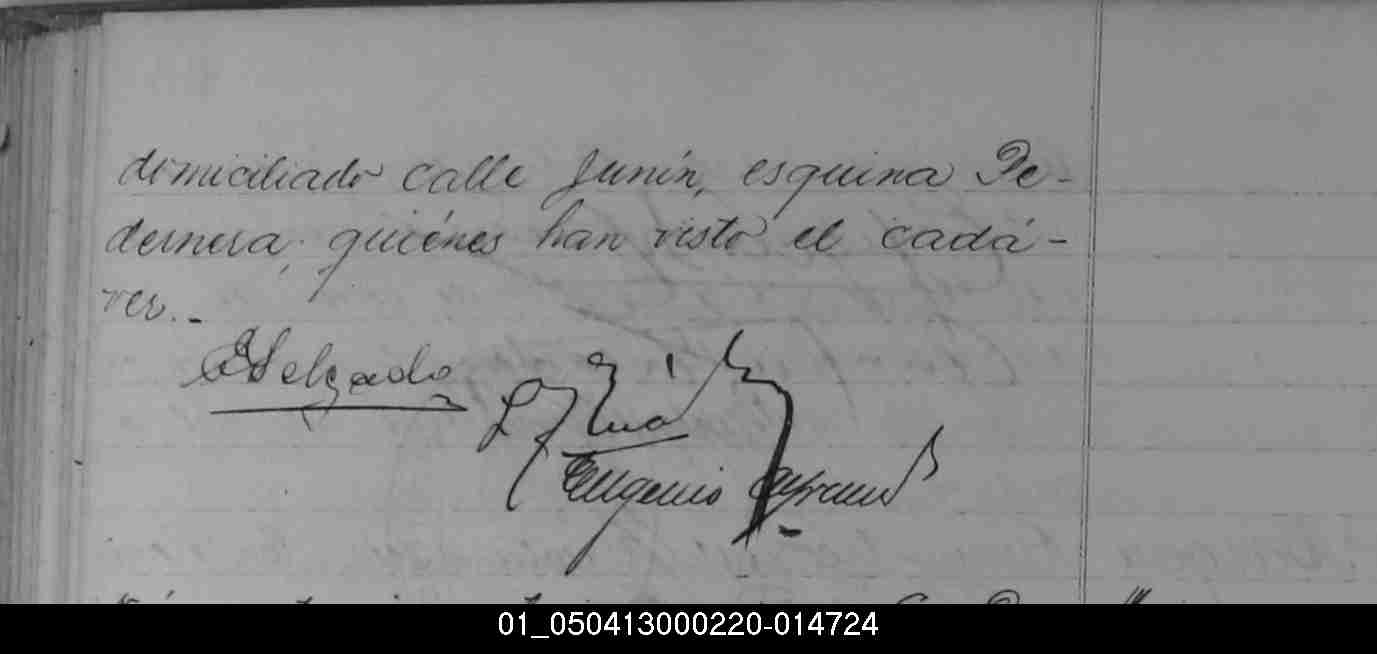 domiciliado calle Junín, esquina Pe-
dernera, quiénes han visto el cadá-
ver.-
Delgado
Eugenio
01_050413000220-014724